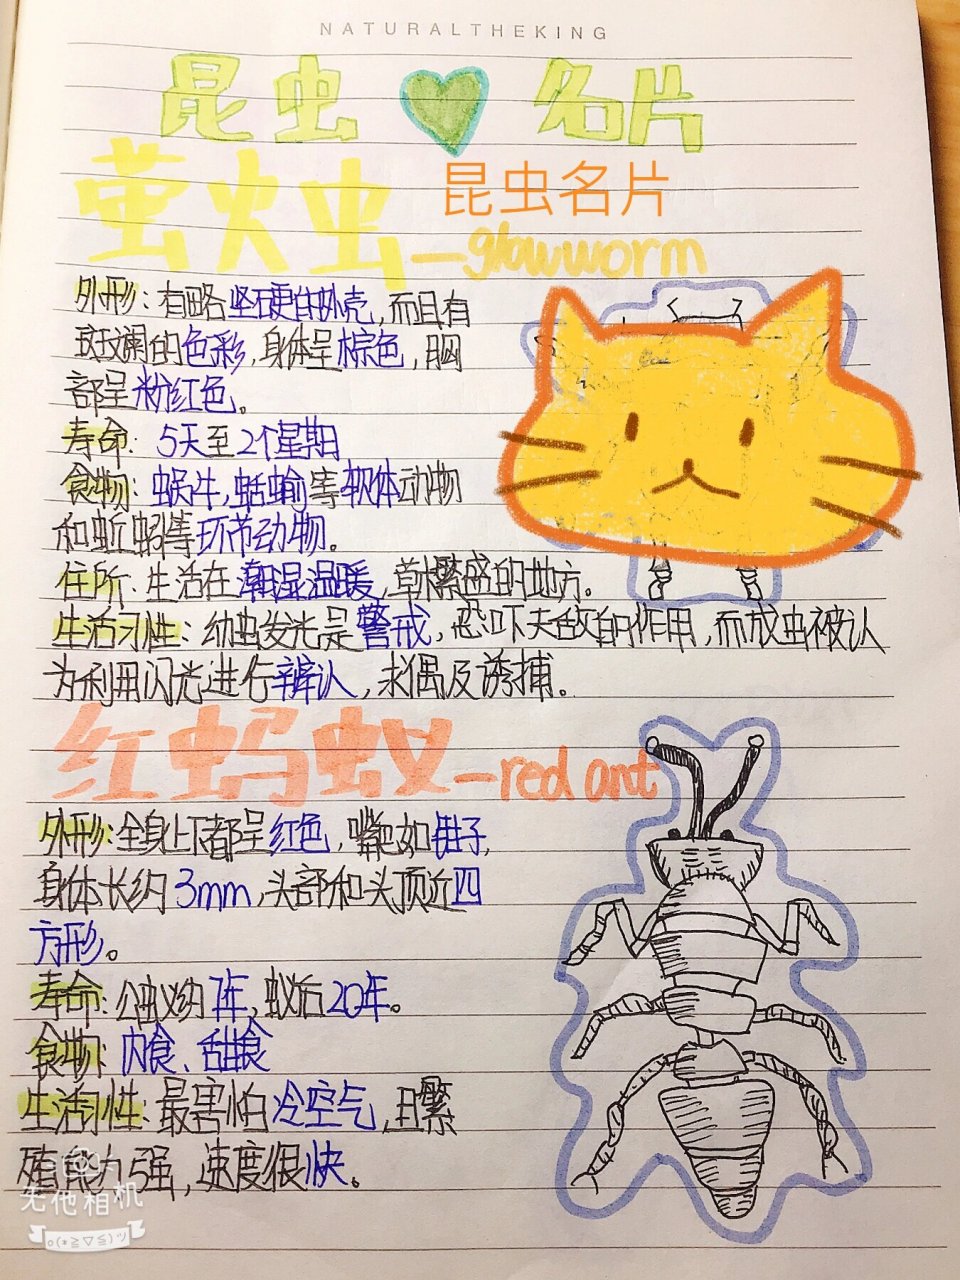 NATURALTHEKING
昆虫名片
昆虫名片
萤火虫—glowworm
外形：有略坚硬的外壳，而且有
斑斓的色彩，身体呈棕色，胸
部呈粉红色。
寿命：5天至2个星期
食物：蜗牛，蛞蝓等软体动物
和蚯蚓等环节动物。
住所：生活在潮湿温暖，草木繁盛的地方。
生活习性：幼虫发光是警戒，恐吓天敌的作用，而成虫被认
为利用闪光进行辨认，求偶及诱捕。
红蚂蚁—red ant
外形：全身上下都呈红色，嘴巴如钳子，
身体长约3mm，头部和头顶近四
方形。
寿命：公蚁约1年，蚁后20年。
食物：肉食、甜食
生活习性：最害怕冷空气，且繁
殖能力强，速度很快。
无他相机